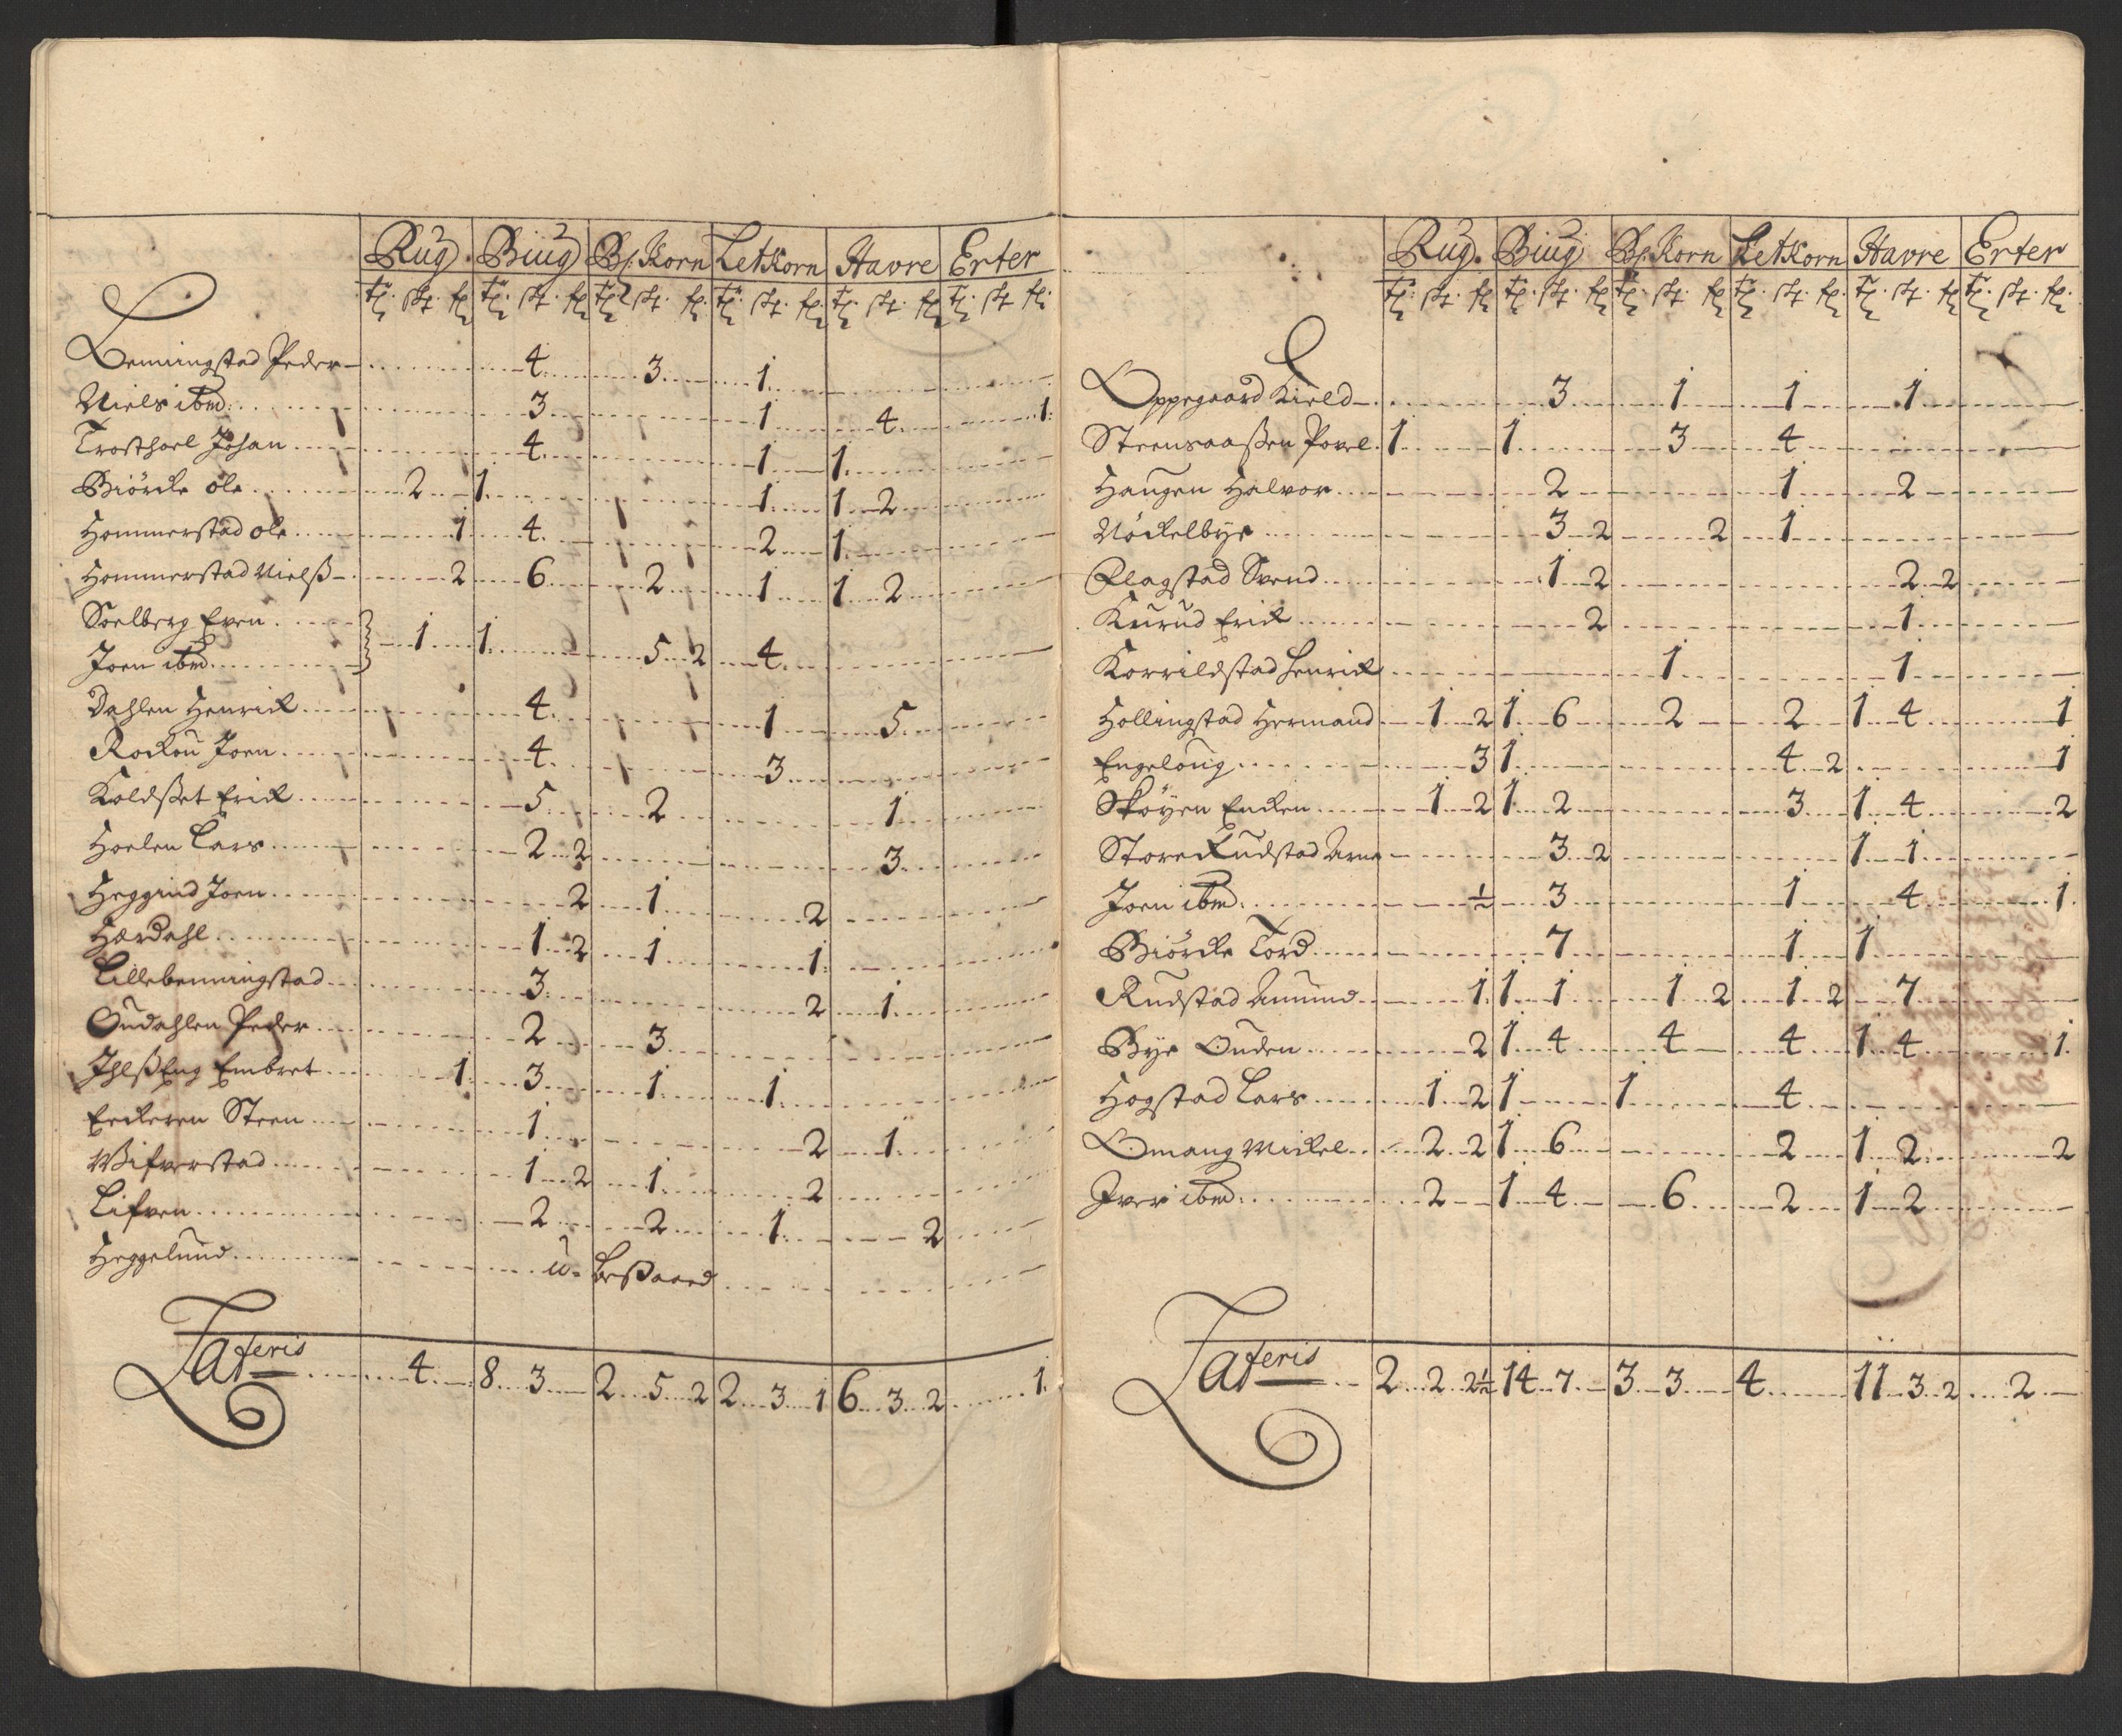 Rug. Biug Bl: Korn LetKorn Havre Erter
Benningstad Peder 4 3 1
Niels ibm: 3 1 4 1
Trosthoel Johan 4 1 1
Biörcke ole 2 1 1 1 2
Hommerstad ole 1 4 2 1
Hommerstad Nielß 2 6 2 1 1 2
Soelberg Even
Joen ibm 1 1 5 2 4
Dahlen Henrick 4 1 5
Rockou Joen 4 3
Koldßet Erick 5 2 1
Hoelen Lars 2 2 3
Heggind Joen 2 1 2
Hordahl 1 2 1 1
Lillebenningstad 3 2 1
Sudahlen Peder 2 3
IhlßEng Embret 1 3 1 1
Eeckeren Steen 1 2 1
Wifverstad 1 2 1 2
Lifven 2 2 1 2
Heggelund u-beßaaed
Lateris 4 8 3 2 5 2 2 3 1 6 3 2 1
Rug. Biug Bl: Korn LetKorn Havre Erter
Oppegaard Kield 3 1 1 1
Steensaaßen Povel 1 1 3 4
Haugen Halvor 2 1 2
Nöckelbye 3 2 2 1
Flagstad Svend 1 2 2 2
Kurud Erick 2 1
Korrildstad Henrick 1 1
Hollingstad Hermand 1 2 1 6 2 2 1 4 1
Engeloug 3 1 4 2 1
Skøyen Encken 1 2 1 2 3 1 4 2
Store Rudstad Arne 3 2 1 1
Joen ibm: ½ 3 1 4 1
Biörcke Tord 7 1 1
Rudstad Amund 1 1 1 1 2 1 2 7
Bye Ouden 2 1 4 4 4 1 4 1
Hogstad Lars 1 2 1 1 4
Omang Mickel 2 2 1 6 2 1 2 2
Iver ibm: 2 1 4 6 2 1 2
Lateris 2 2 2½ 14 7 3 3 4 11 3 2 2